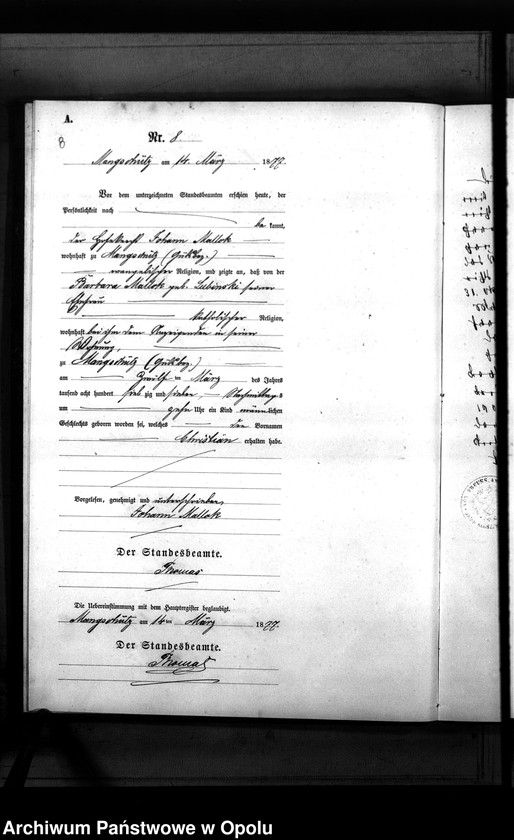 A.
8
Nr. 8
Mangschütz am 14. März 1877
Vor dem unterzeichneten Standesbeamten erschien heute, der
Persönlichkeit nach
be kannt,
der Johann Mallok
wohnhaft zu Mangschütz (Gutsbez.)
evangelischer Religion, und zeigte an, daß von der
Barbara Mallok geb. Lubinski seiner
Ehefrau
katholischer Religion,
wohnhaft bei ihm dem Anzeigenden in seiner
Wohnung
zu Mangschütz (Gutsbez.)
am März des Jahres
tausend acht hundert sieb zig und sieben, Nachmittags
um zehn Uhr ein Kind männlichen
Geschlechts geboren worden sei, welches den Vornamen
Christian erhalten habe.
Vorgelesen, genehmigt und unterschrieben
Johann Mallok
Der Standesbeamte.
Thomas
Die Uebereinstimmung mit dem Hauptregister beglaubigt.
Mangschütz am 14 ten März 1877
Der Standesbeamte.
Thomas
Archiwum Państwowe w Opolu